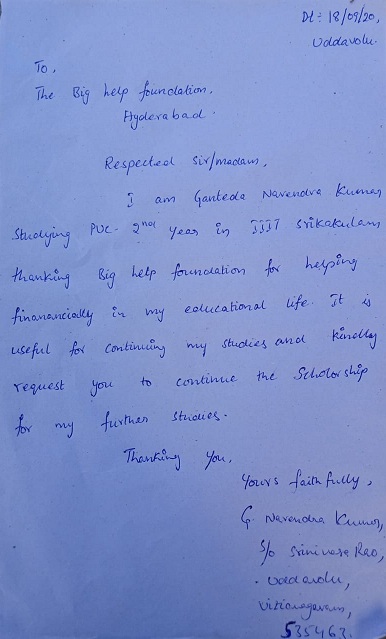 Dt: 18/09/20,
Uddavolu.
To,
The Big help foundation,
Hyderabad.
Respected sir/madam,
I am Ganteda Narendra Kumar
Studying PUC- 2nd year in IIIT srikakulam
thanking Big help foundation for helping
finanancially in my educational life. It is
useful for continuing my studies and kindly
request you to continue the Scholorship
for my further studies.
Thanking you,
yours faithfully,
G. Narendra Kumar,
s/o srinivasa Rao,
Uddavolu,
vizianagaram,
535463.